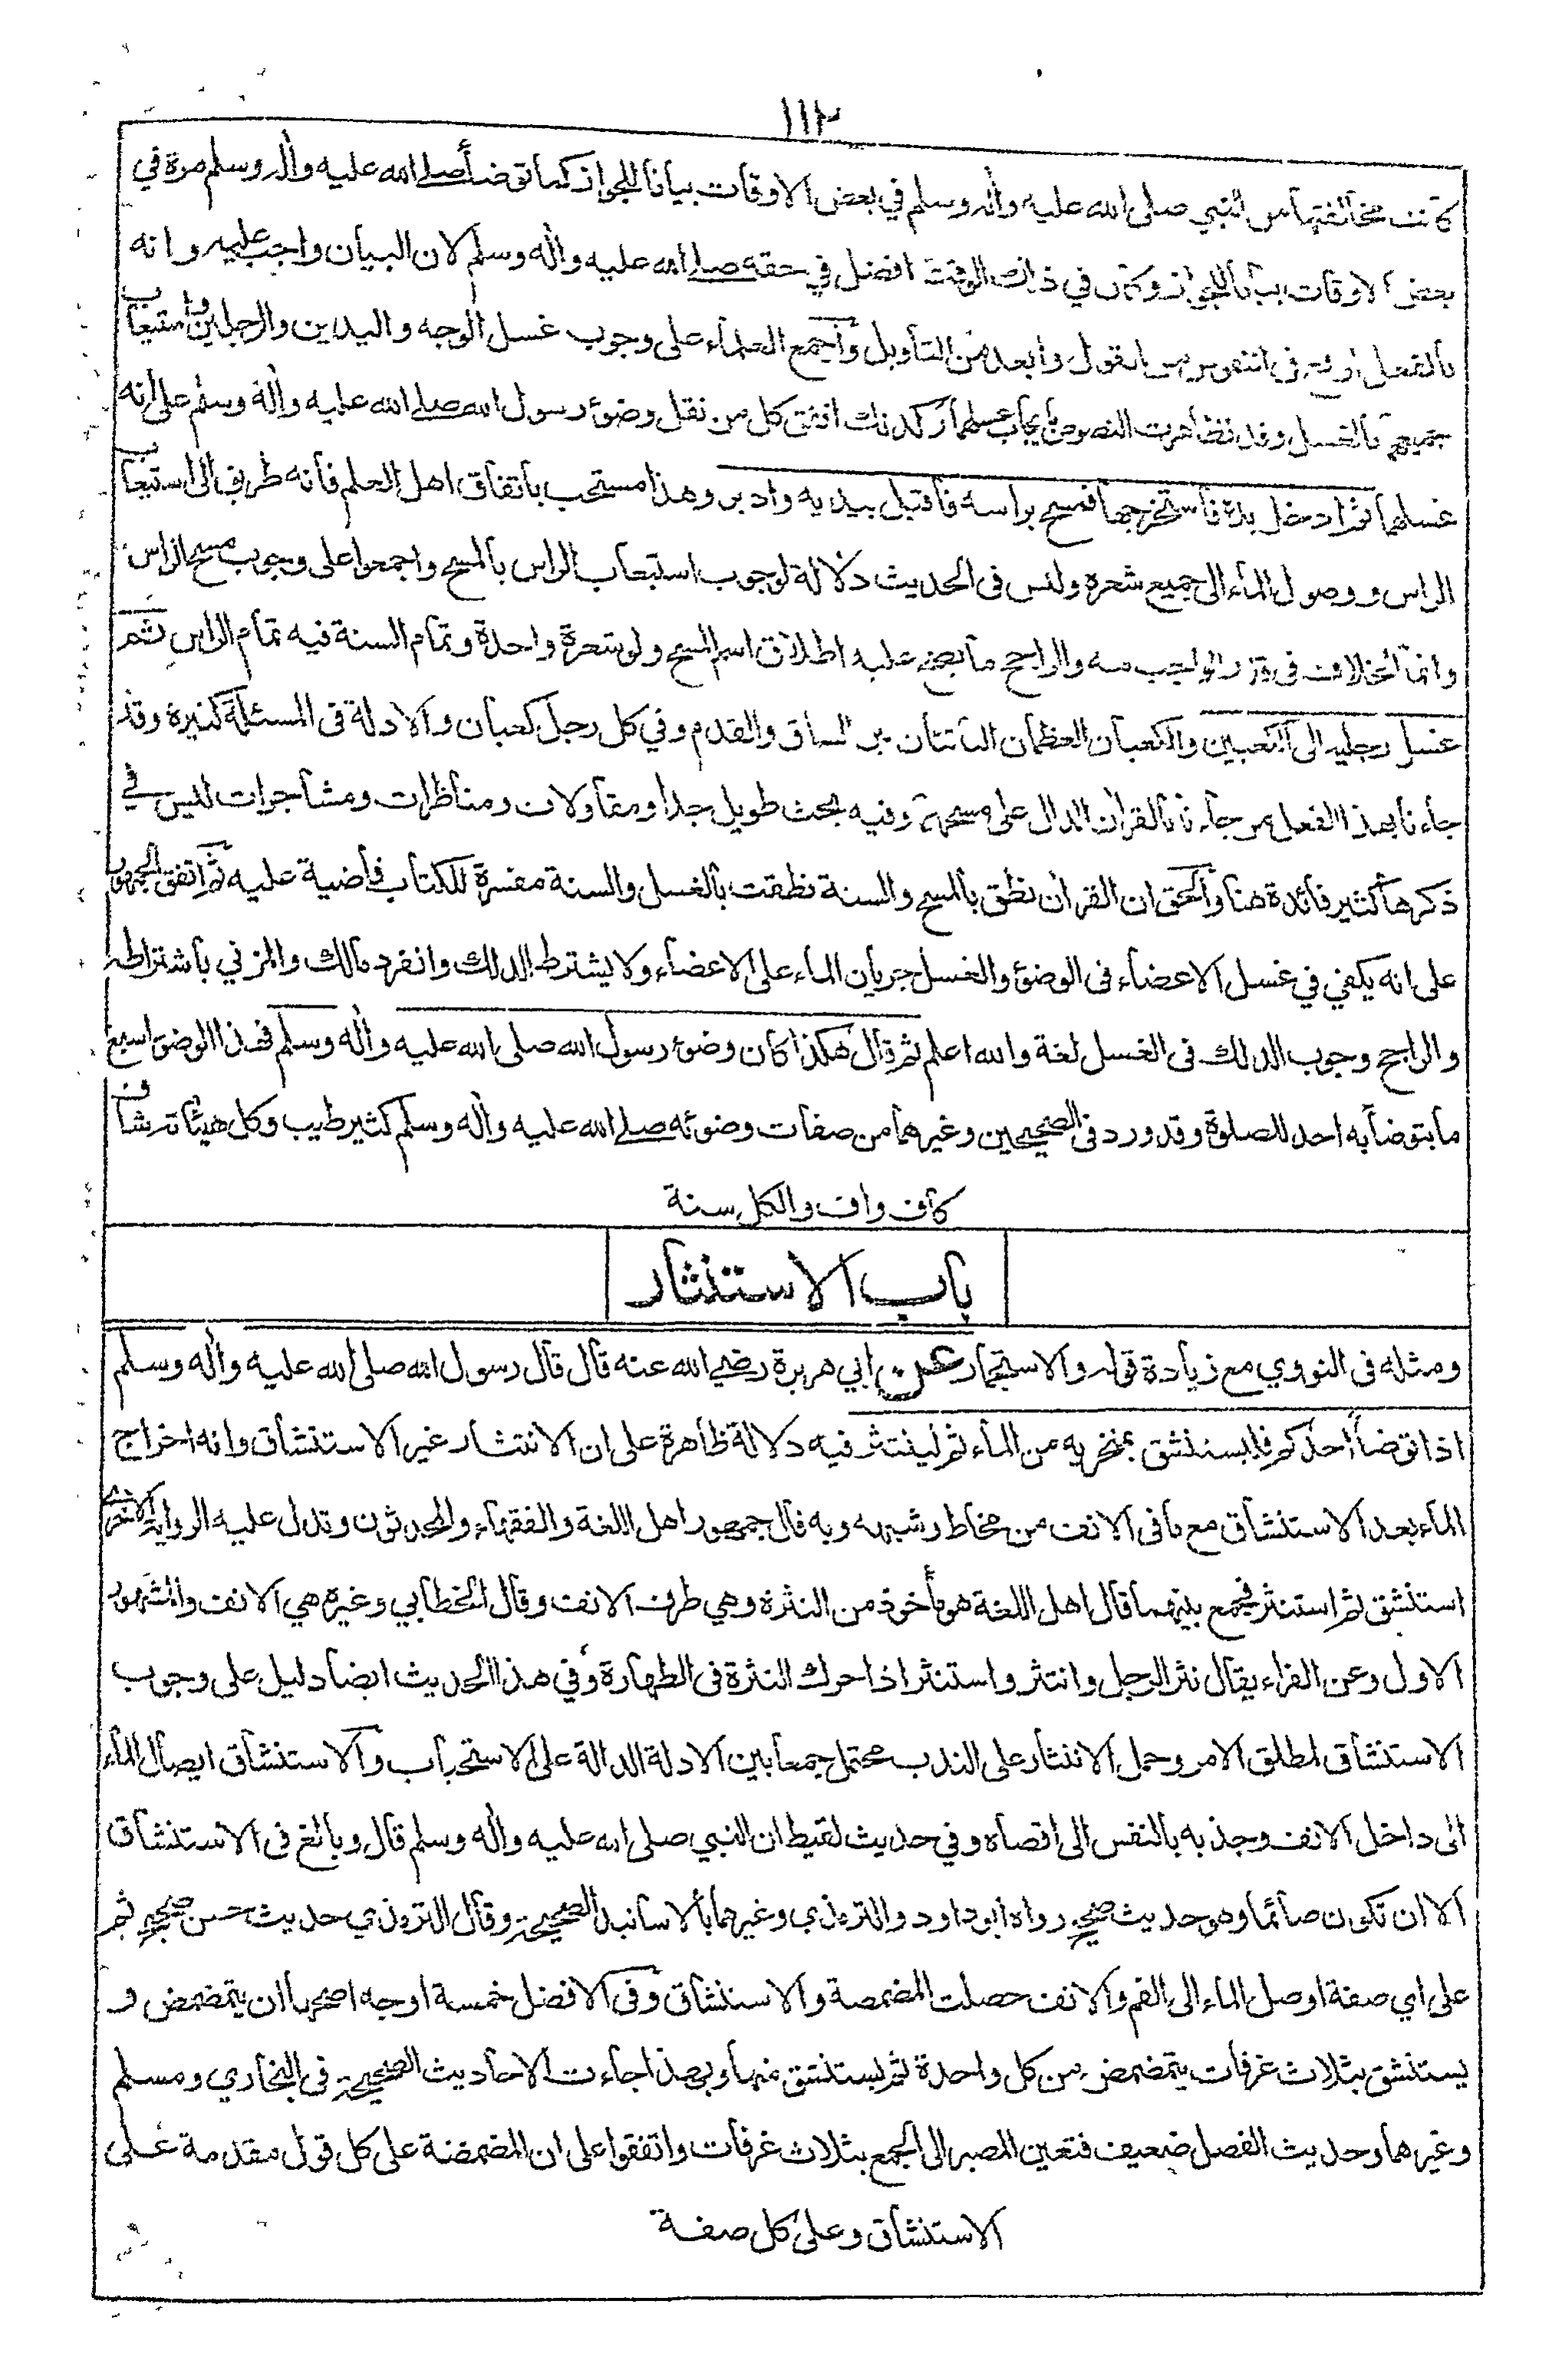 ١١٢
كانت مخالفتها من النبي صلى الله عليه وآله وسلم في بعض الاوقات بيانا للجواز كما توضأ صلے الله عليه وآله وسلم مرة في
بعض الاوقات بيانا للجواز وكان في ذلك الوقت افضل في حقه صلے الله عليه وآله وسلم لان البيان واجب عليه وانه
بالفعل اوقع في النفوس من القول وابعد من التأويل واجمع العلماء على وجوب غسل الوجه واليدين والرجلين واستيعاب
جميعهم بالغسل وقد تظاهرت النصوص بايجاب غسلها وكذلك اتفق كل من نقل وضوء رسول الله صلے الله عليه وآله وسلم على انه
غسلهما ثم ادخل يده فاستخرجها فمسح براسه فاقبل بيديه وادبر وهذا مستحب باتفاق اهل العلم فانه طريق الى استيعاب
الراس ووصول الماء الى جميع شعره وليس فى الحديث دلالة لوجوب استيعاب الراس بالمسح واجمعوا على وجوب مسح الراس
وانما الخلاف فى قدر الواجب منه والراجح ما يصح عليه اطلاق اسم المسح ولو شعرة واحدة وتمام السنة فيه تمام الراس ثم
غسل رجليه الى الكعبين والكعبان العظمان الناتئان بين الساق والقدم وفي كل رجل كعبان والادلة فى المسئلة كثيرة وقد
جاءنا بهذا الفعل من جاءنا بالقران الدال على مسحهما وفيه بحث طويل جدا ومقاولات ومناظرات ومشاجرات ليس في
ذكرها كثير فائدة هنا والحق ان القران نطق بالمسح والسنة نطقت بالغسل والسنة مفسرة للكتاب قاضية عليه ثم اتفق الجمهور
على انه يكفي في غسل الاعضاء فى الوضوء والغسل جريان الماء على الاعضاء ولا يشترط الدلك وانفرد مالك والمزني باشتراطه
والراجح وجوب الدلك فى الغسل لغة والله اعلم ثم قال هكذا كان وضوء رسول الله صلى الله عليه وآله وسلم فهذا الوضوء اسبغ
ما يتوضأ به احد للصلوة وقد ورد فى الصحيحين وغيرهما من صفات وضوئه صلے الله عليه وآله وسلم كثير طيب وكل هيئاته شاف
كاف واف والكل سنة
باب الاستنثار
ومثله فى النووي مع زيادة قوله والاستجمار عن ابي هريرة رضي الله عنه قال قال رسول الله صلى الله عليه وآله وسلم
اذا توضأ احدكم فليستنشق بمنخريه من الماء ثم لينتثر فيه دلالة ظاهرة على ان الانتثار غير الاستنشاق وانه اخراج
الماء بعد الاستنشاق مع ما فى الانف من مخاط وشبهه وبه قال جمهور اهل اللغة والفقهاء والمحدثون وتدل عليه الرواية الاخرى
استنشق ثم استنثر فجمع بينهما قال اهل اللغة هو مأخوذ من النثرة وهي طرف الانف وقال الخطابي وغيره هي الانف والمشهور
الاول وعن الفراء يقال نثر الرجل وانتثر واستنثر اذا حرك النثرة فى الطهارة وفي هذا الحديث ايضا دليل على وجوب
الاستنشاق لمطلق الامر وحمل الانتثار على الندب محتمل جمعا بين الادلة الدالة على الاستحباب والاستنشاق ايصال الماء
الى داخل الانف وجذبه بالنفس الى اقصاه وفي حديث لقيط ان النبي صلى الله عليه وآله وسلم قال وبالغ فى الاستنشاق
الا ان تكون صائما وهو حديث صحيح رواه ابو داود والترمذي وغيرهما بالاسانيد الصحيحة وقال الترمذي حديث حسن صحيح ثم
على اي صفة اوصل الماء الى الفم والانف حصلت المضمضة والاستنشاق وفى الافضل خمسة اوجه اصحها ان يتمضمض و
يستنشق بثلاث غرفات يتمضمض من كل واحدة ثم يستنشق منها وبهذا جاءت الاحاديث الصحيحة فى البخاري ومسلم
وغيرهما وحديث الفصل ضعيف فتعين المصير الى الجمع بثلاث غرفات واتفقوا على ان المضمضة على كل قول مقدمة على
الاستنشاق وعلى كل صفة